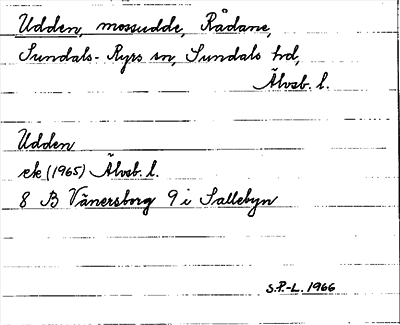 Udden, mossudde, Rådane,
Sundals-Ryrs sn, Sundals hd,
Älvsb. l.
Udden
ek (1965) Älvsb. l.
8 B Vänersborg 9 i Sallebyn
S.P.-L. 1966